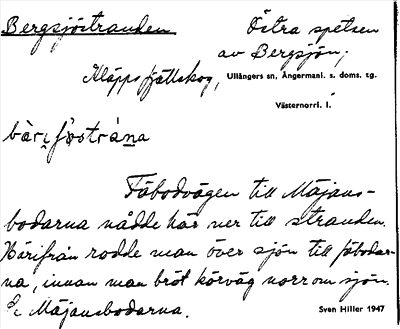 Bergsjöstranden
Östra spetsen
av Bergsjön,
Kläppsfjällskog,
Ullångers sn, Ångermanl. s. doms. tg.
Västernorrl. l.
Fäbodvägen till Måjans-
bodarna nådde här ner till stranden.
Härifrån rodde man över sjön till fäbodar-
na, innan man bröt körväg norr om sjön.
Måjansbodarna.
Sven Hiller 1947